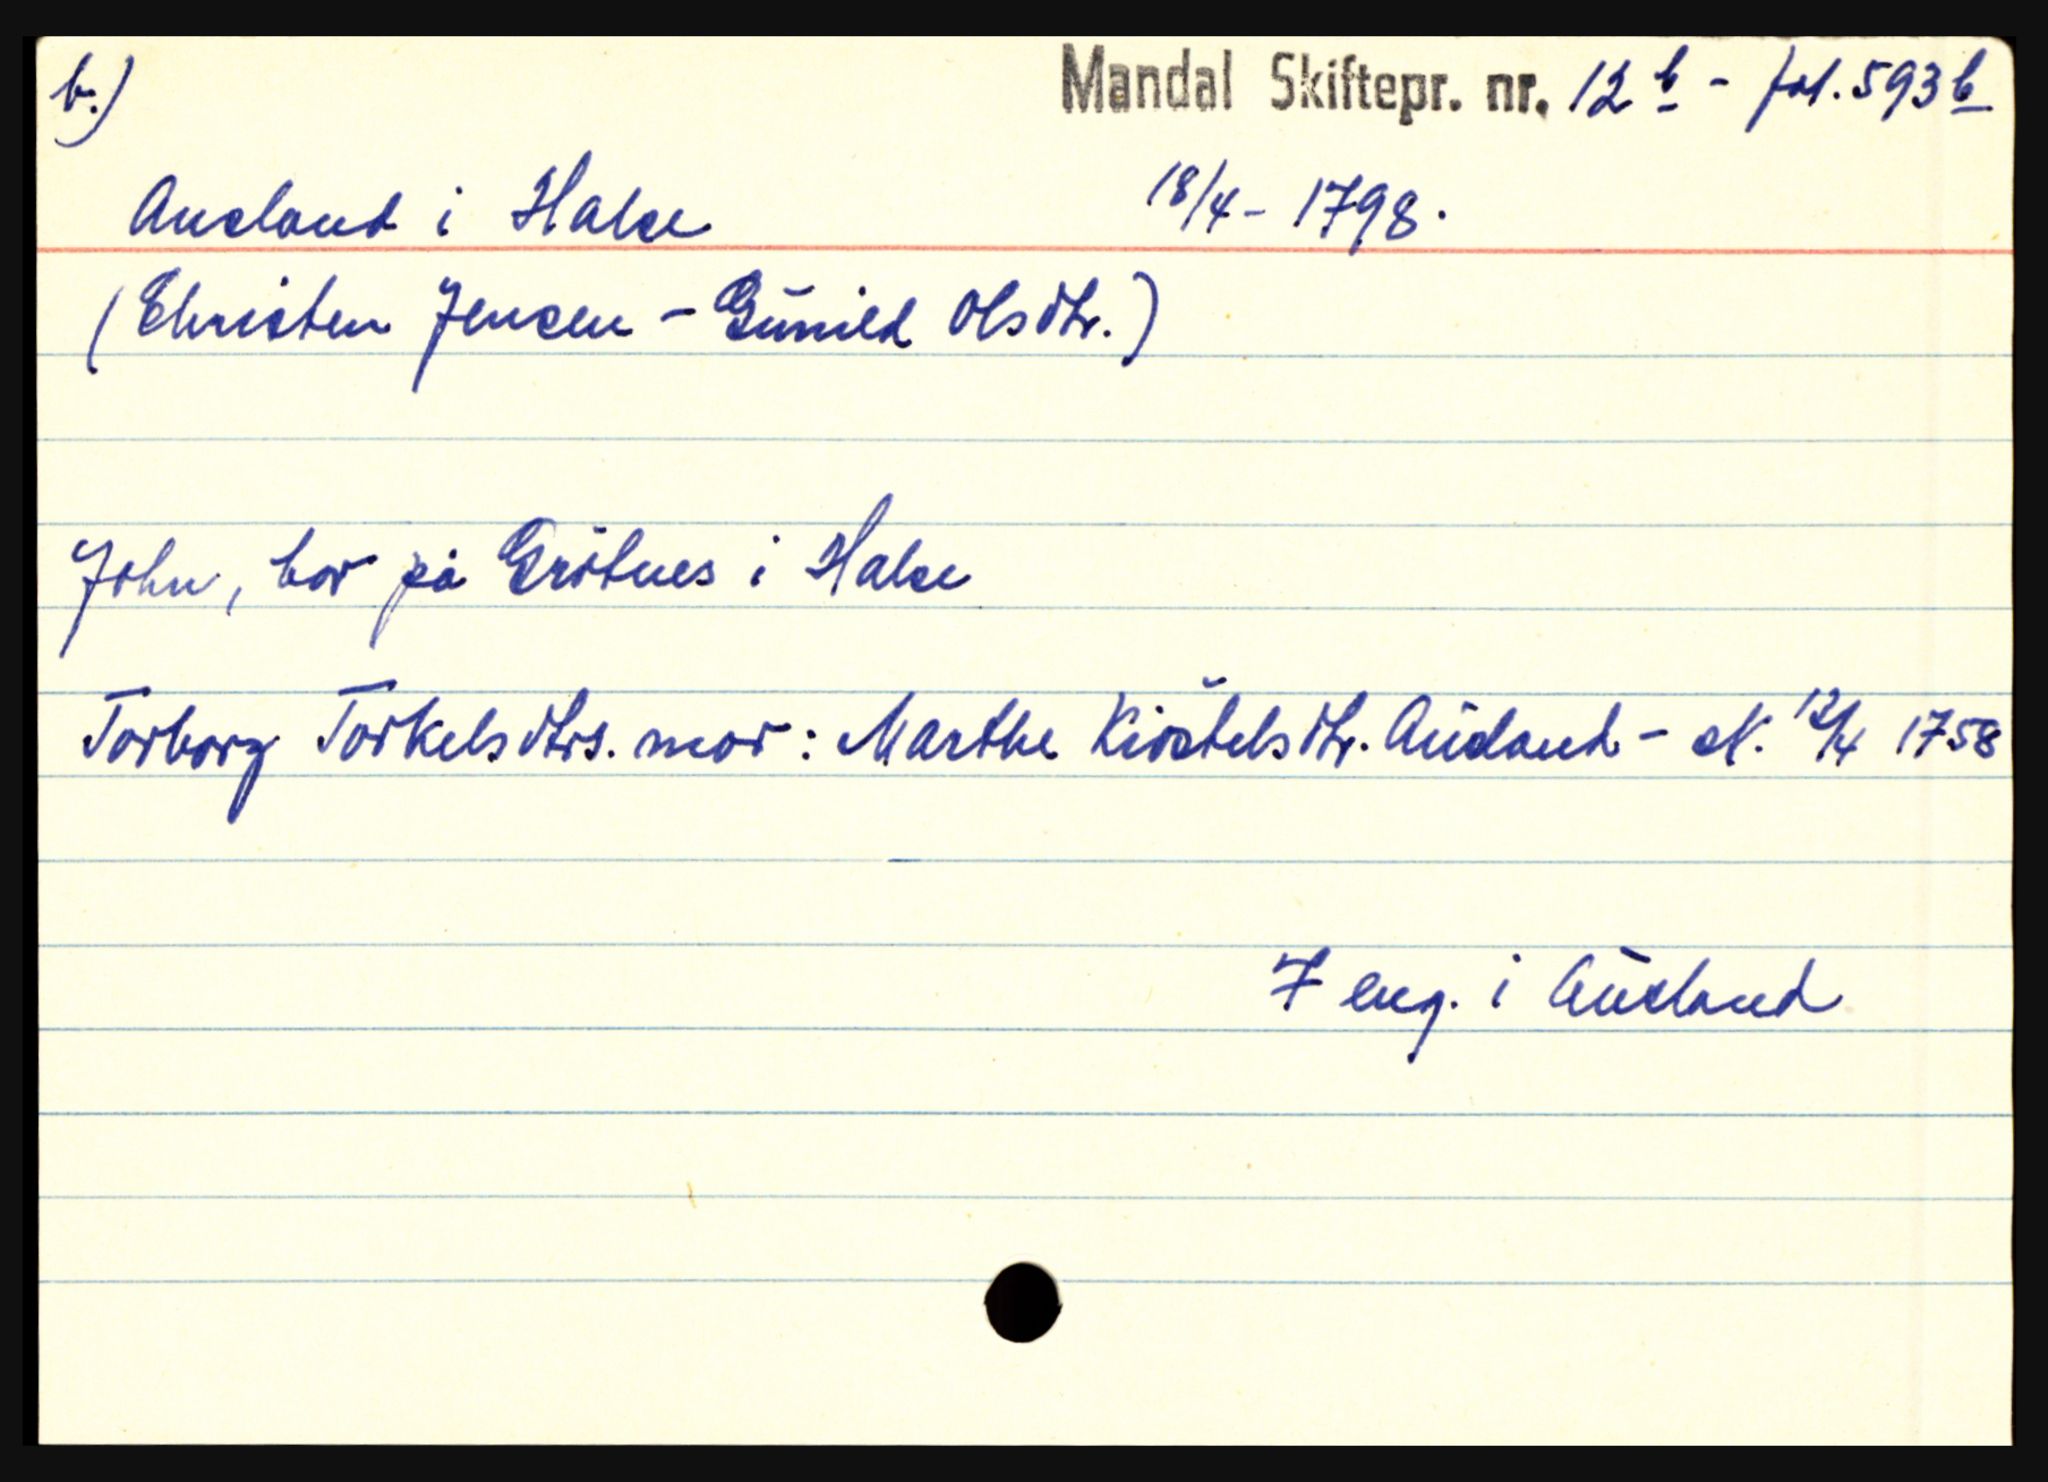 b.)
Mandal Skiftepr. nr. 12 b - fol. 593 b
Ausland i Halse
18/4 - 1798.
(Christen Jensen - Gŭnild Olsdtr.)
John, bor på Grötnes i Halse
Torborg Torkelsdtrs. mor: Marthe Kirstels dtr. Aŭsland - 12/4 1758
7 eng. i Aŭsland